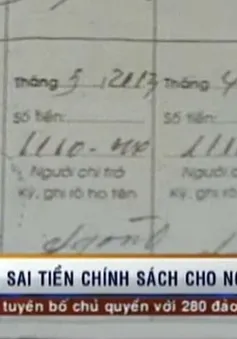 Tháng 5 2013 Tháng 4
Số tiền: Số tiền:
Người chi trả Người c
Ký, ghi rõ họ tên Ký, ghi rõ h
SAI TIỀN CHÍNH SÁCH CHO N
tuyên bố chủ quyền với 280 đảo